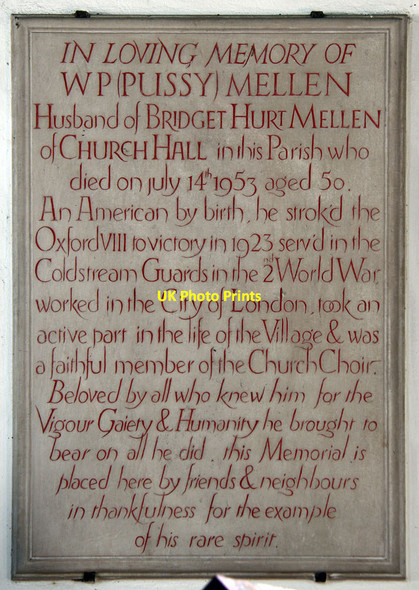 IN LOVING MEMORY OF
W P (PUSSY) MELLEN
Husband of BRIDGET HURT MELLEN
of CHURCH HALL in this Parish who
died on july 14th 1953 aged 50.
An American by birth, he strok'd the
Oxford VIII to victory in 1923 serv'd in the
Coldstream Guards in the 2nd World War
worked in the City of London, took an
UK Photo Prints
active part in the life of the Village & was
a faithful member of the Church Choir.
Beloved by all who knew him for the
Vigour Gaiety & Humanity he brought to
bear on all he did, this Memorial is
placed here by friends & neighbours
in thankfulness for the example
of his rare spirit.